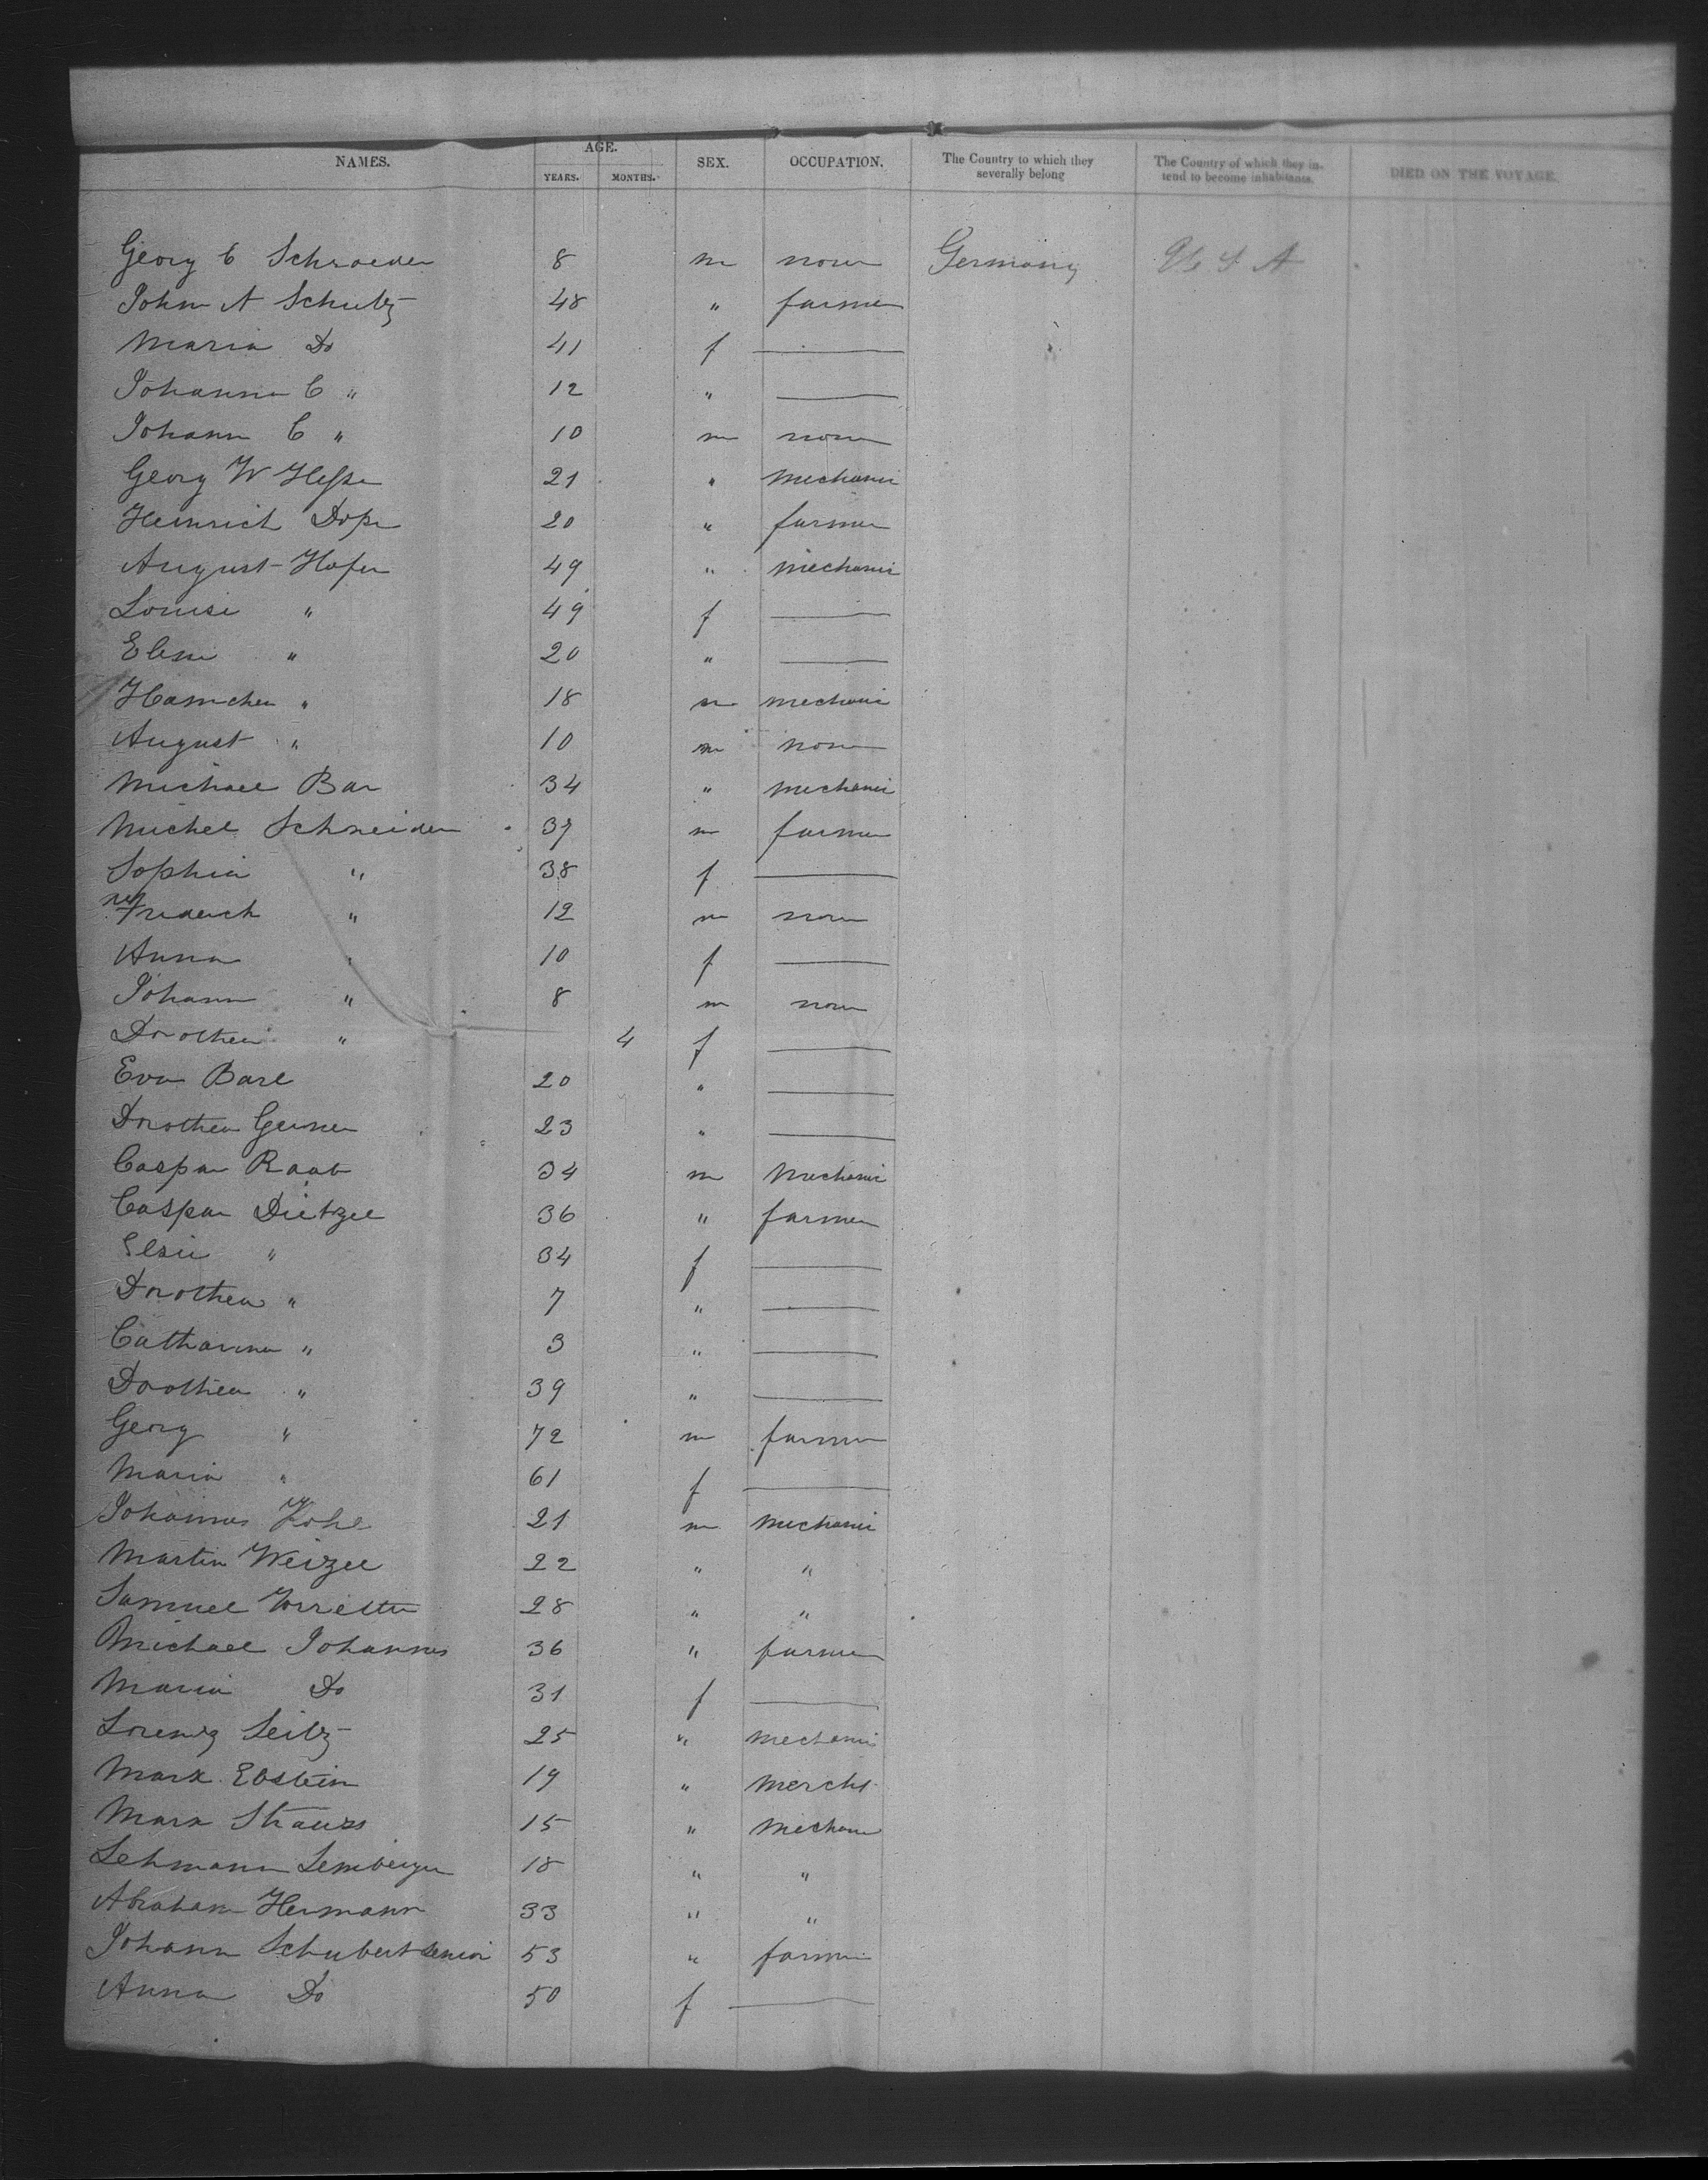 NAMES. AGE. YEARS. MONTHS. SEX. OCCUPATION. The Country to which they severally belong The Country of which they intend to become inhabitants. DIED ON THE VOYAGE.
Georg C Schroeder 8 m none Germany U S A
John A Schultz 48 " farmer
Maria Do 41 f
Johanna C " 12 "
Johann C " 10 m none
Georg W Hesse 21 " mechanic
Heinrich 20 " farmer
August Hofer 49 " mechanic
Louise " 49 f
" 20 "
" 18 m mechanic
August " 10 m none
Michael Bar 34 " mechanic
Michel Schneider 37 m farmer
Sophia " 38 f
Frederich " 12 m none
Anna " 10 f
Johann " 8 m none
Dorothea " 4 f
Eva 20 "
Dorothea 23 "
Caspar Raab 34 m mechanic
Caspar Dietzel 36 " farmer
Elsie " 34 f
Dorothea " 7 "
Catharina " 3 "
Dorothea " 39 "
Georg " 72 m farmer
Maria " 61 f
Johannes Kohl 21 m mechanic
Martin Weizel 22 " "
Samuel 28 " "
Michael Johannes 36 " farmer
Maria Do 31 f
Lorenz Seitz 25 " mechanic
Marx Ebstein 19 " mercht
Marx Strauss 15 " mechanic
Lehmann Lemberger 18 " "
Abraham Hermann 33 " "
Johann Schubert Senior 53 " farmer
Anna Do 50 f